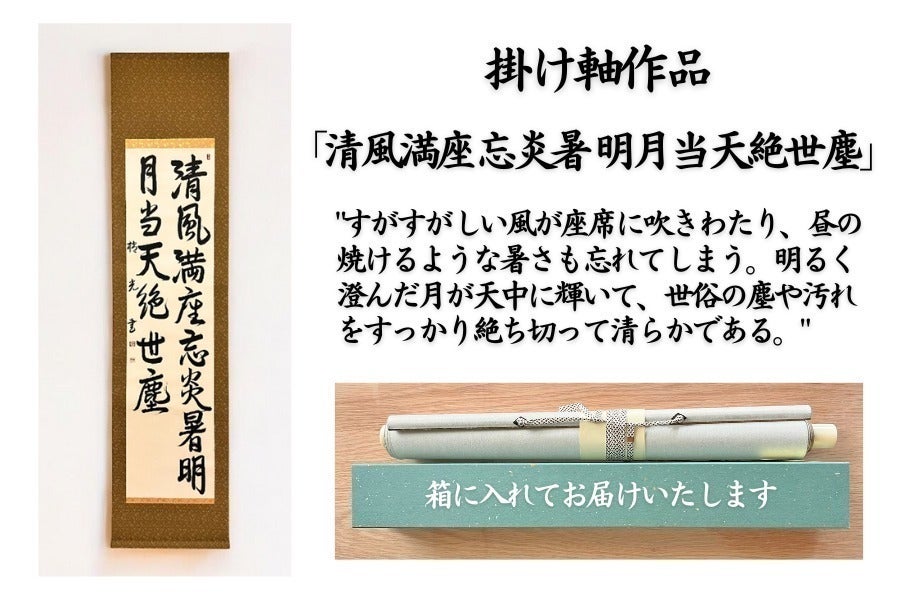 掛け軸作品
「清風満座忘炎暑 明月当天絶世塵」
"すがすがしい風が座席に吹きわたり、昼の
焼けるような暑さも忘れてしまう。明るく
澄んだ月が天中に輝いて、世俗の塵や汚れ
をすっかり絶ち切って清らかである。"
清風満座忘炎暑明
月当天絶世塵
光書
箱に入れてお届けいたします